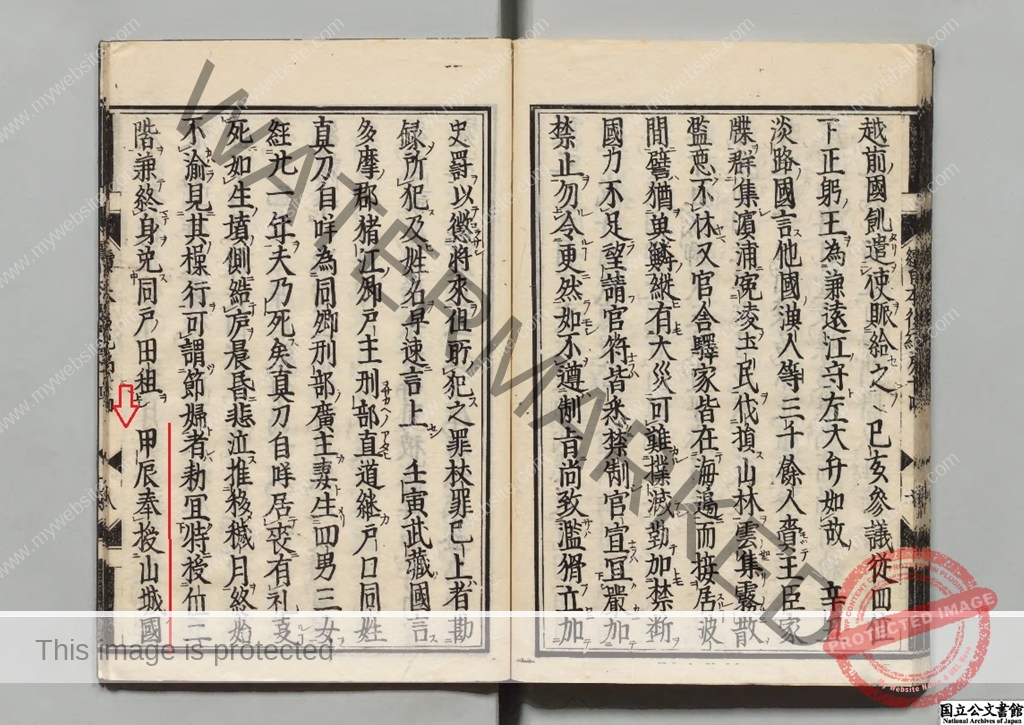 越前國飢遣使賑給之 己亥參議從四
下正躬王為兼遠江守左大弁如故 辛丑
淡路國言他國漁人等三千餘人賷王臣家
牒群集濱浦寃凌土民伐損山林雲集霧散
濫惡不休又官舎驛家皆在海邊而接居彼
間譬猶奥鱗縱有大災可難撲滅勤加禁斷
國力不足望請官符皆悉禁制官宣宜嚴加
禁止勿令更然如不遵制旨尚致濫猾立加
史爵以懲將來但所犯之罪杖罪已上者勘
録所犯及姓名早速言上 壬寅武藏國言
多摩郡猪江郷戸主刑部直道継戸口同姓
真刀自咩為同郷刑部廣主妻生四男三女
経廿一年夫乃死矣真刀自咩居喪有礼
死如生墳側結庐晨昏悲泣推移穢月終始
不渝見其操行可謂節婦者勅冝特授位二
階兼終身免同戸田租 甲辰奉授山城國
WATERMARKED
www.mywebsite.com
This image is protected
PROTECTED IMAGE
My Website
国立公文書館
National Archives of Japan